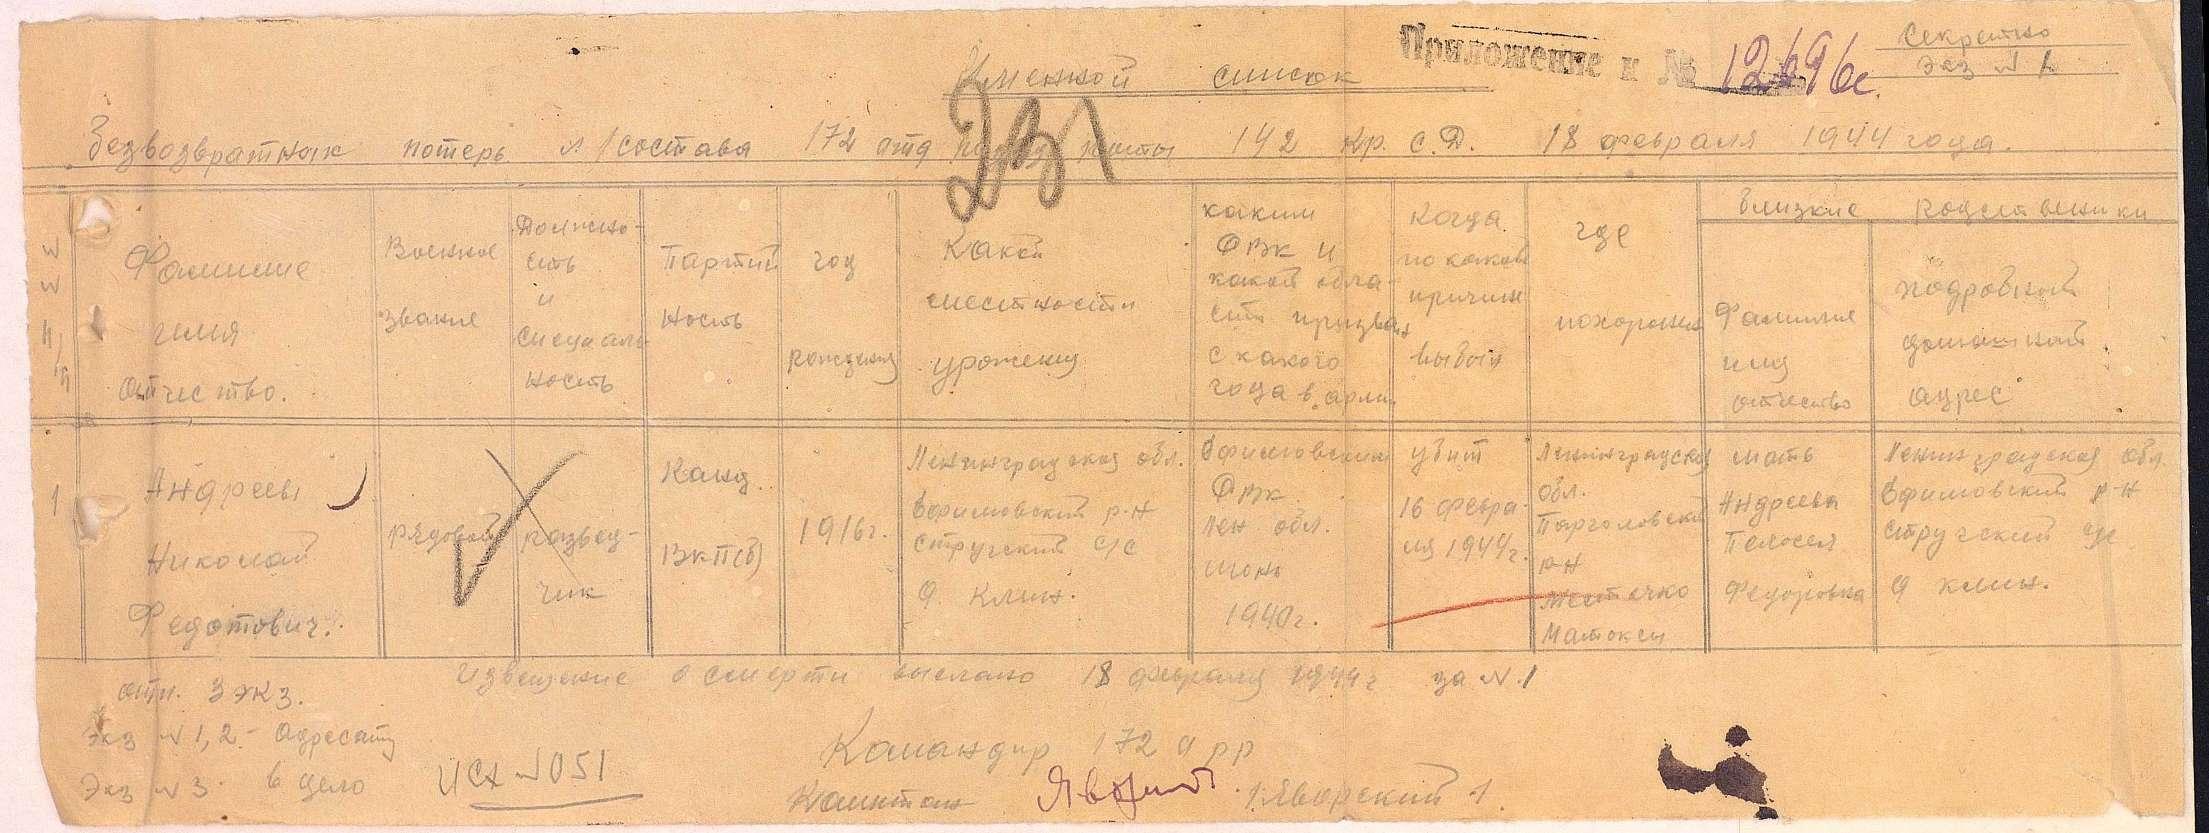 Приложение к № 12696с.
Секретно
экз № 1
Именной список
231
Безвозвратных потерь л/состава 172 отд развед роты 142 кр. С.Д. 18 февраля 1944 года.
№№ п/п
Фамилие
имя
отчество.
Военное
звание
Должно-
сть
и
специаль
ность
Партий
ность
год
рождения
Какой
местности
уроженец
каким
РВК и
какой обла-
сти призван
с какого
года в армии
Когда
по какой
причине
выбыл
где
похоронен
Близкие родственники
Фамилие
имя
отчество
подробный
домашний
адрес
1
Андреев
Николай
Федотович.
рядовой
развед-
чик
Канд.
ВКП(б)
1916г.
Ленинградская обл.
Ефимовский р-н
Стругский с/с
д. Клин.
Ефимовским
РВК
Лен обл.
июнь
1940г.
убит
16 февра-
ля 1944г.
Ленинградская
обл.
Парголовский
р-н
местечко
Матоксы
мать
Андреева
Пелагея
Федоровна
Ленинградская обл.
Ефимовский р-н
Стругский с/с
д Клин.
Извещение о смерти выслано 18 февраля 1944г за №1
отп. 3 экз.
Экз №1,2 - адресату
Экз №3 - в дело
исх №051
Командир 172 орр
Капитан /Яворский/.